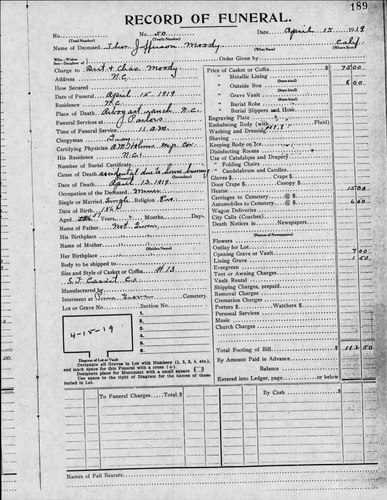 189
RECORD OF FUNERAL.
No. No. 50 Date April 15 1919
(Total Number) (Yearly Number)
Name of Deceased Thos. Jefferson Moody Calif
(What Race) (Where Born)
Charge to Burt & Chas. Moody
Address N.C.
How Secured
Date of Funeral April 15, 1919
Residence N.C.
Place of Death ranch N.C.
Funeral Services at Parlors
Time of Funeral Service 11 A.M.
Clergyman
Certifying Physician
His Residence N.C.
Number of Burial Certificate
Cause of Death accidental due to house burning
Date of Death April 13, 1919
Occupation of Deceased Miner
Single or Married Single Religion
Date of Birth
Aged Years, Months, Days.
Name of Father Not Given
His Birthplace
Name of Mother
(Maiden Name)
Her Birthplace
Body to be shipped to
Size and Style of Casket or Coffin #13
Manufactured by
Interment at Cemetery.
Lot or Grave No. Section No.
4-15-19
1.
2.
3.
4.
5.
6.
Diagram of Lot or Vault
Designate all Graves in Lot with Numbers (1, 2, 3, 4, etc.),
and mark space for this Funeral with a cross (+).
Designate place for Monument with a small square
Use space to the right of Diagram for the names of those
buried in Lot.
Order Given by
Price of Casket or Coffin $ 75 00
" Metallic Lining
" Outside Box 5 00
" Grave Vault
" Burial Robe
" Burial Slippers and Hose
Engraving Plate
Embalming Body (with Fluid)
Washing and Dressing
Shaving
Keeping Body on Ice
Disinfecting Rooms
Use of Catafalque and Drapery
" Folding Chairs
" Candelabrum and Candles
Gloves $ Crape $
Door Crape $ Canopy
Hearse 15 00
Carriages to Cemetery @$
Automobiles to Cemetery @$ 6 00
Wagon Deliveries
City Calls (Coaches)
Death Notices in Newspapers
(Names of Newspapers)
Flowers
Outlay for Lot
Opening Grave or Vault 7 00
Lining Grave 1 50
Evergreen
Tent or Awning Charges
Vault Rental
Shipping Charges, prepaid
Removal Charges
Cremation Charges
Porters $ Watchers $
Personal Services
Music
Church Charges
Total Footing of Bill $ 112 50
By Amount Paid in Advance
Balance
Entered into Ledger, page or below.
To Funeral Charges Total $ By Cash $
Names of Pall Bearers